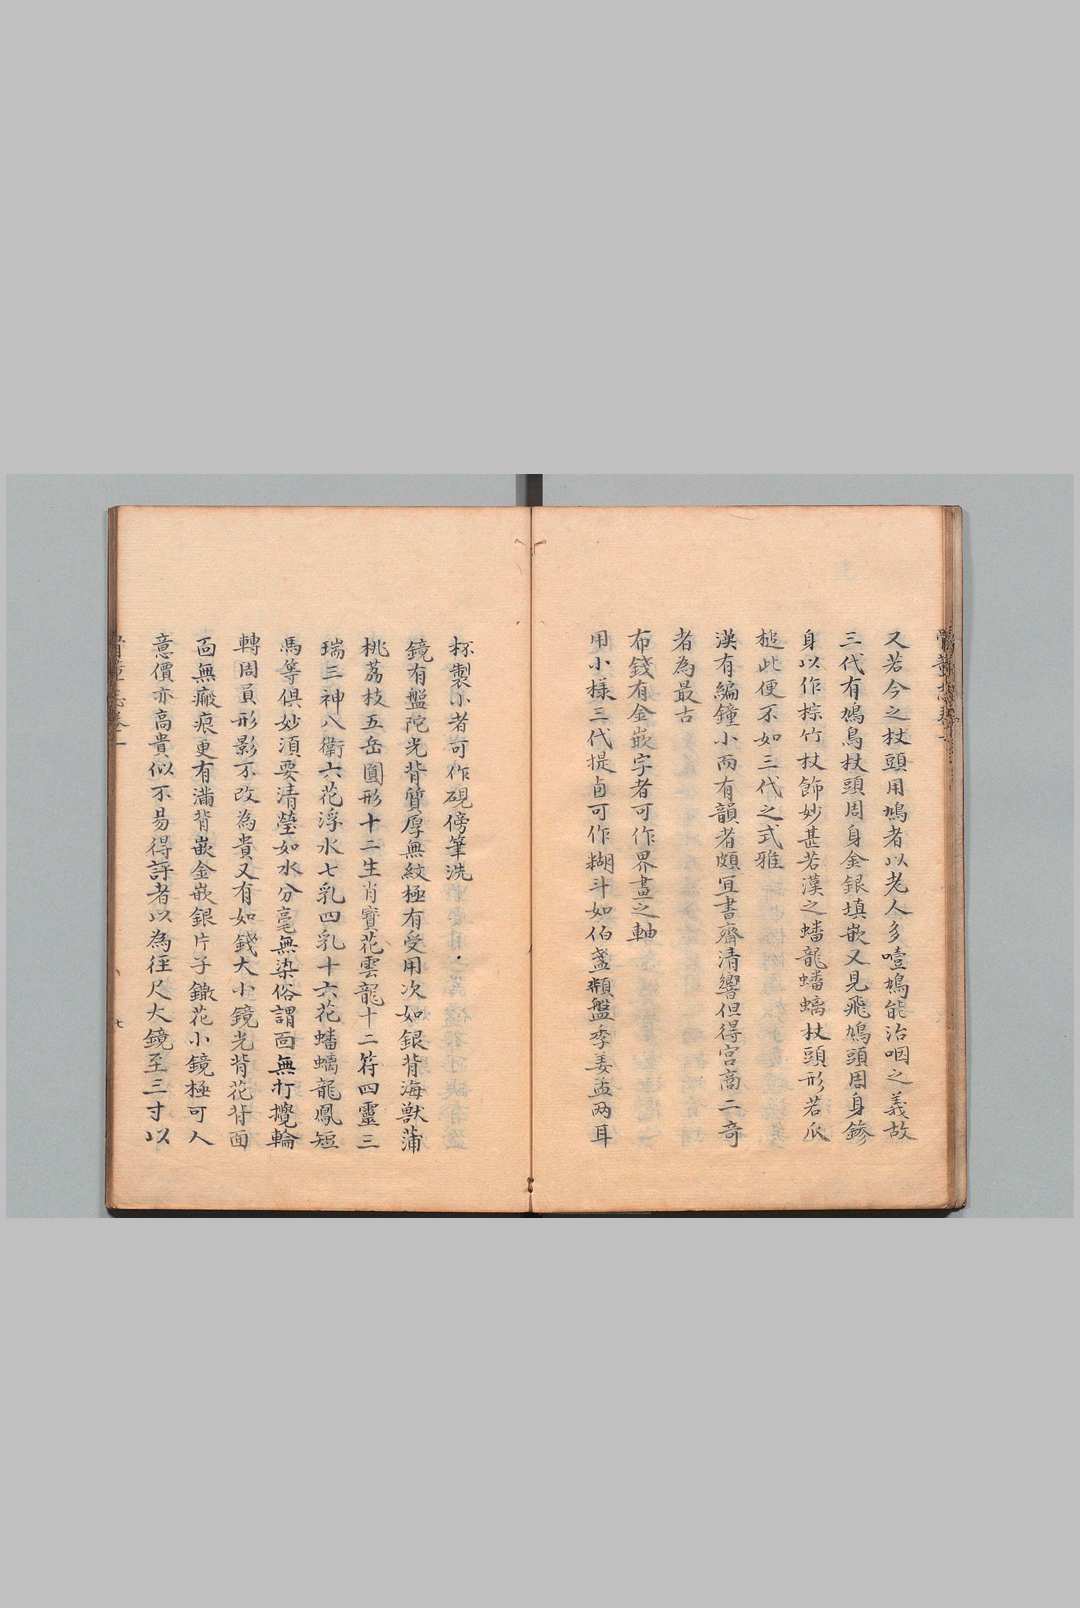 又若今之杖頭用鳩者以老人多噎鳩能治咽之義故
三代有鳩鳥杖頭周身金銀填嵌又見飛鳩頭周身鏒
身以作棕竹杖飾妙甚若漢之蟠龍蟠螭杖頭形若瓜
槌此便不如三代之式雅
漢有編鐘小而有韻者頗宜書齋清響但得宮商二音
者為最古
布錢有金嵌字者可作界畫之軸
用小樣三代提卣可作糊斗如伯盞頮盤季姜盂兩耳
杯製小者可作硯傍筆洗
鏡有盤陀光背質厚無紋極有受用次如銀背海獸蒲
桃荔枝五岳圓形十二生肖寶花雲龍十二符四靈三
瑞三神八衛六花浮水七乳四乳十六花蟠螭龍鳳短
馬等俱妙須要清瑩如水分毫無染俗謂面無打攪輪
轉周員形影不改為貴又有如錢大小鏡光背花背面
面無瘢痕更有滿背嵌金嵌銀片子鏾花小鏡極可人
意價亦高貴似不易得評者以為徑尺大鏡至三寸以
骨董志卷一
七